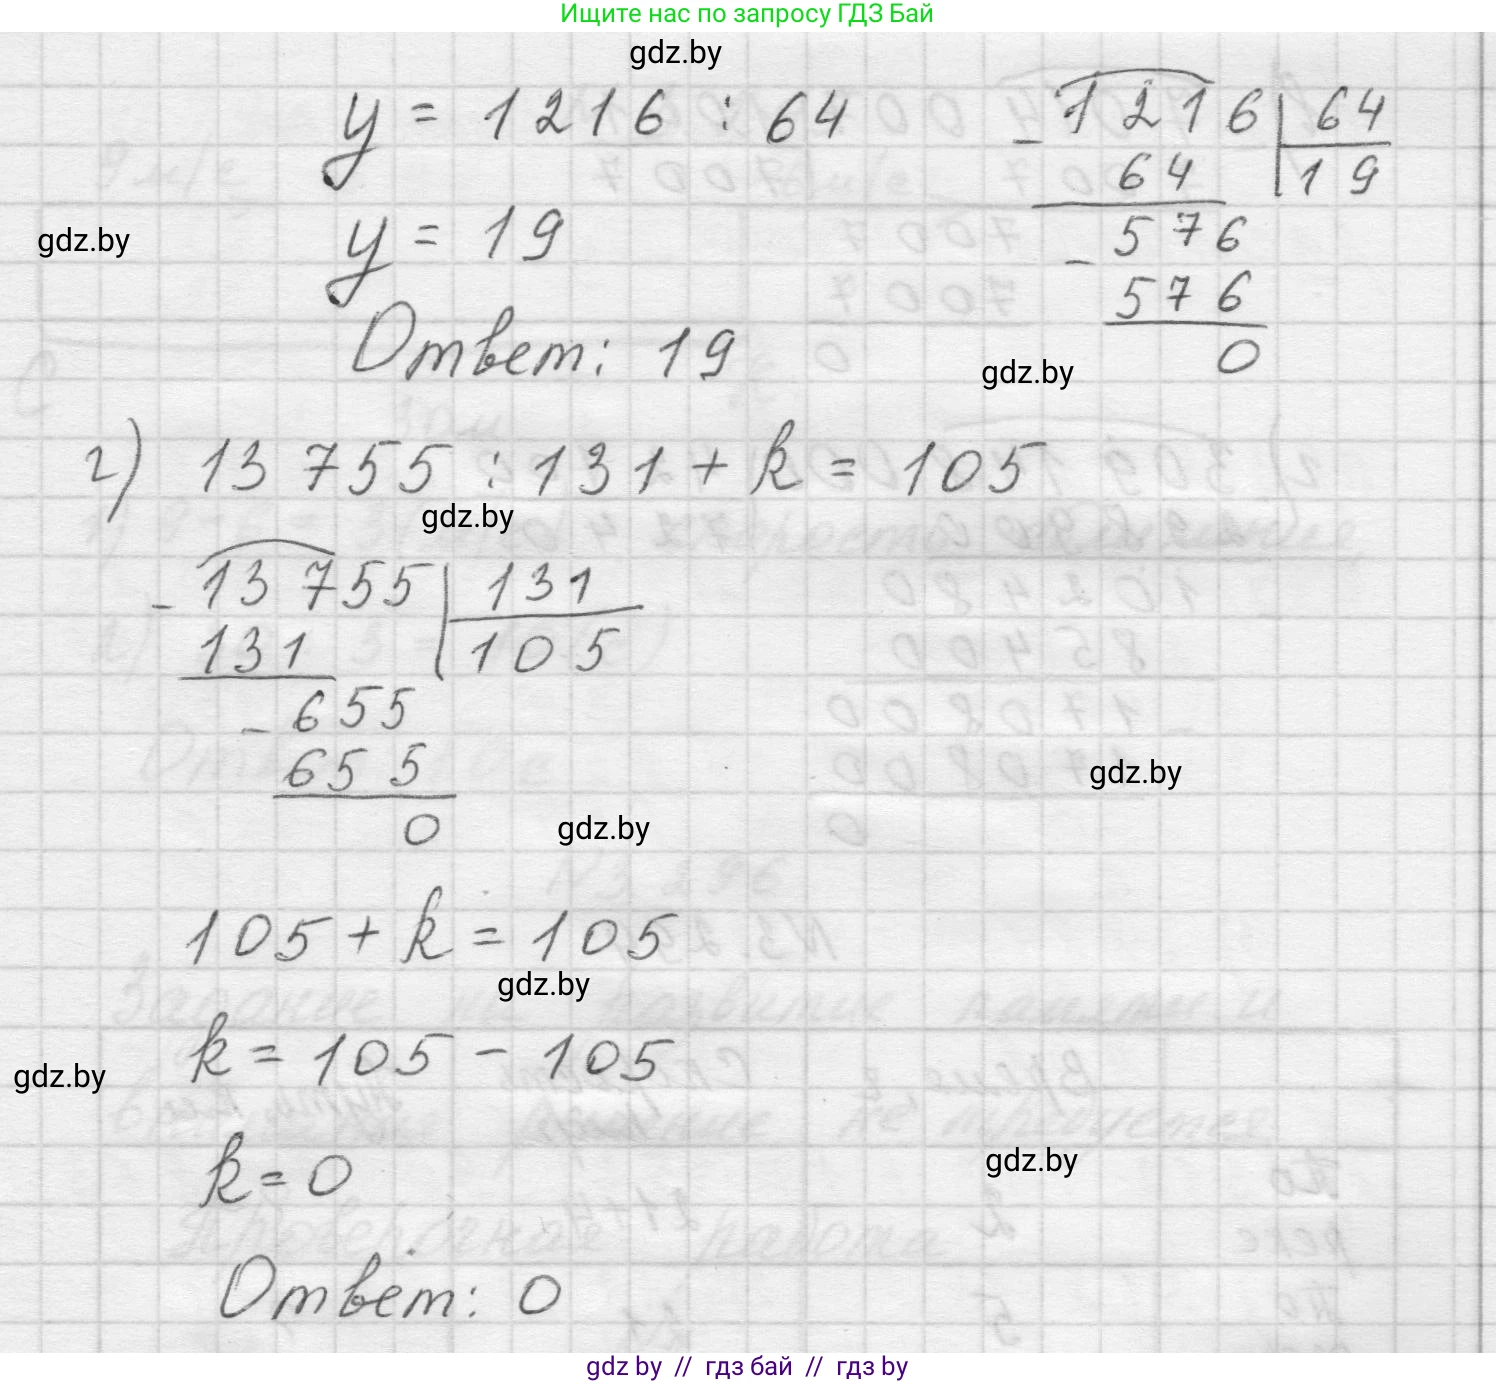 Ищите нас по запросу ГДЗ Бай
gdz.by
y = 1216 : 64
1216 | 64
- 64
19
gdz.by
y = 19
576
- 576
0
Ответ: 19
gdz.by
г) 13 755 : 131 + k = 105
gdz.by
13 755 | 131
- 131
105
655
- 655
0
gdz.by
gdz.by
105 + k = 105
gdz.by
k = 105 - 105
gdz.by
k = 0
gdz.by
Ответ: 0
gdz by // гдз бай // гдз by